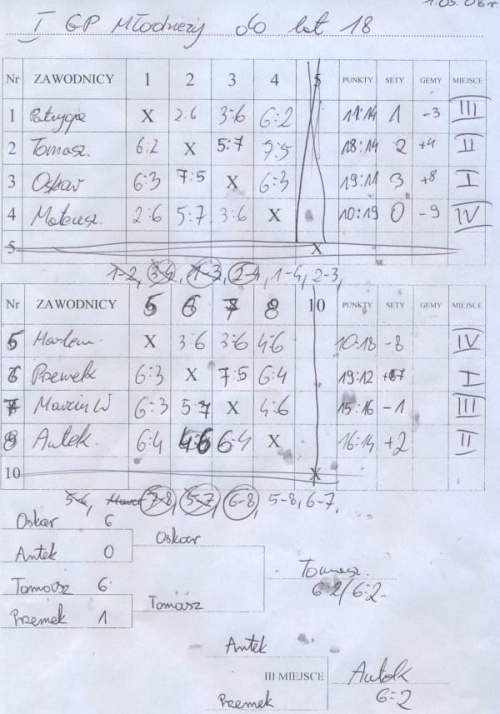 1.05.08 r
I GP Młodzieży do lat 18
Nr ZAWODNICY 1 2 3 4 5 PUNKTY SETY GEMY MIEJSCE
1 Patrycja X 2:6 3:6 6:2 11:14 1 -3 III
2 Tomasz 6:2 X 5:7 7:5 18:14 2 +4 II
3 Oskar 6:3 7:5 X 6:3 19:11 3 +8 I
4 Mateusz 2:6 5:7 3:6 X 10:19 0 -9 IV
5 X
1-2, 3-4, 1-3, 2-4, 1-4, 2-3,
Nr ZAWODNICY 5 6 7 8 10 PUNKTY SETY GEMY MIEJSCE
5 Marlena X 3:6 3:6 4:6 10:18 -8 IV
6 Przemek 6:3 X 7:5 6:4 19:12 +7 I
7 Marcin W 6:3 5:7 X 4:6 15:16 -1 III
8 Antek 6:4 4:6 6:4 X 16:14 +2 II
10 X
5-6, 7-8, 5-7, 6-8, 5-8, 6-7,
Oskar 6
Oskar
Antek 0
Tomasz
6:2/6:2
Tomasz 6
Tomasz
Przemek 1
Antek
III MIEJSCE Antek
6:2
Przemek